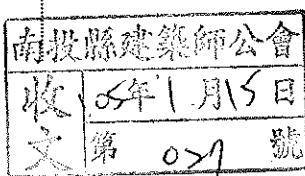 南投縣建築師公會
收文
05年1月15日
第027號